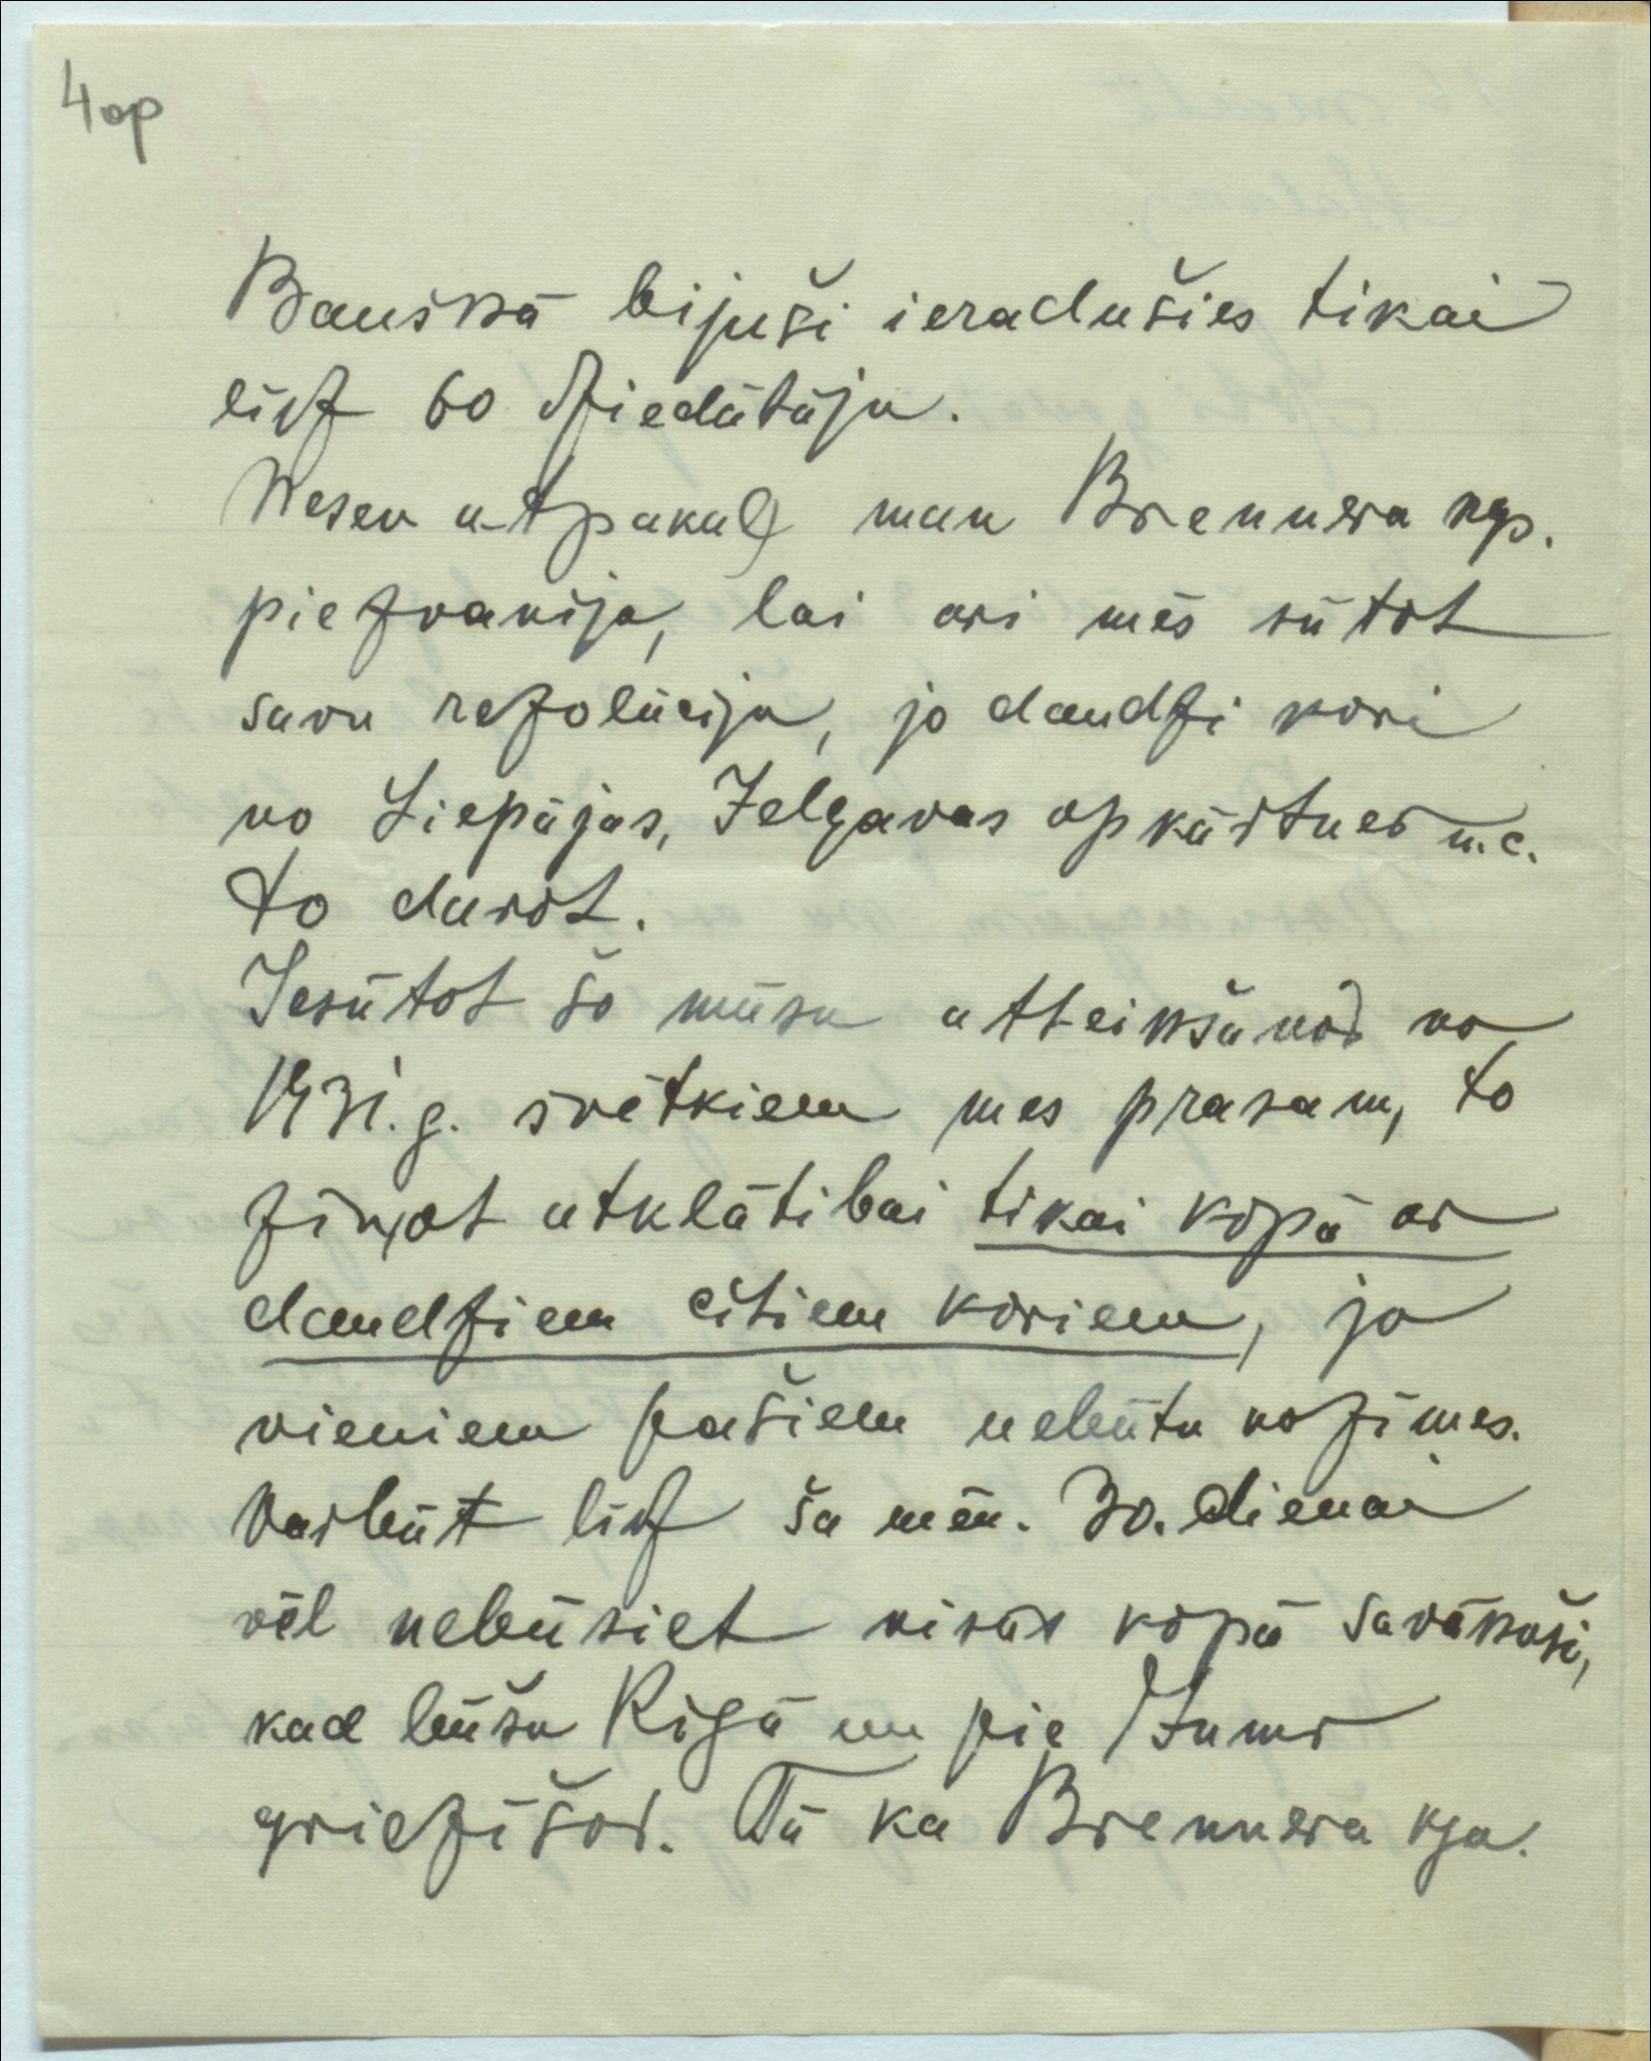 4op
Bauskā bijuši ieradušies tikai
līdz 60 dziedātāju.
Nesen atpakaļ man Brennera kgs.
piezvanija, lai arī mēs sūtot
savu rezolūciju, jo daudzi kori
no Liepājas, Jelgavas apkārtnes u.c.
to darot.
Iesūtot šo mūsu atteikšanos no
1931. g. svētkiem mes prasam, to
ziņot atklātibai tikai kopā ar
daudziem citiem koriem, jo
vieniem pašiem nebūtu nozimes.
Varbūt līdz ša mēn. 30. dienai
vēl nebūsiet visas kopā savākuši,
kad būšu Rigā un pie Jums
griezišos. Tā ka Brennera kga.